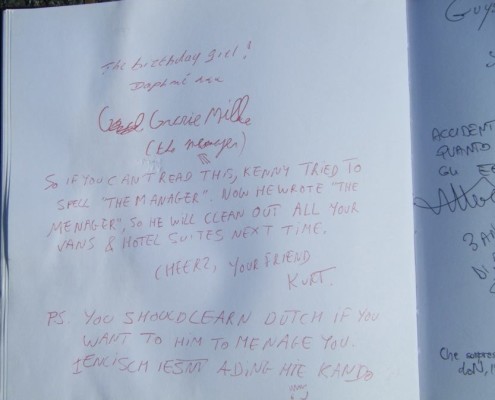 The birthday girl!
Daphné aka
(the menager)
SO IF YOU CAN'T READ THIS, KENNY TRIED TO
SPELL "THE MANAGER". NOW HE WROTE "THE
MENAGER", SO HE WILL CLEAN OUT ALL YOUR
VANS & HOTEL SUITES NEXT TIME.
CHEERS, YOUR FRIEND
KURT.
PS. YOU SHOULD LEARN DUTCH IF YOU
WANT TO HIM TO MENAGE YOU.
IENGISCH IESNT ADING HIE KAN DO
Guys
ACCIDENT
QUANTO
GLI
3 AN
DI A
Che